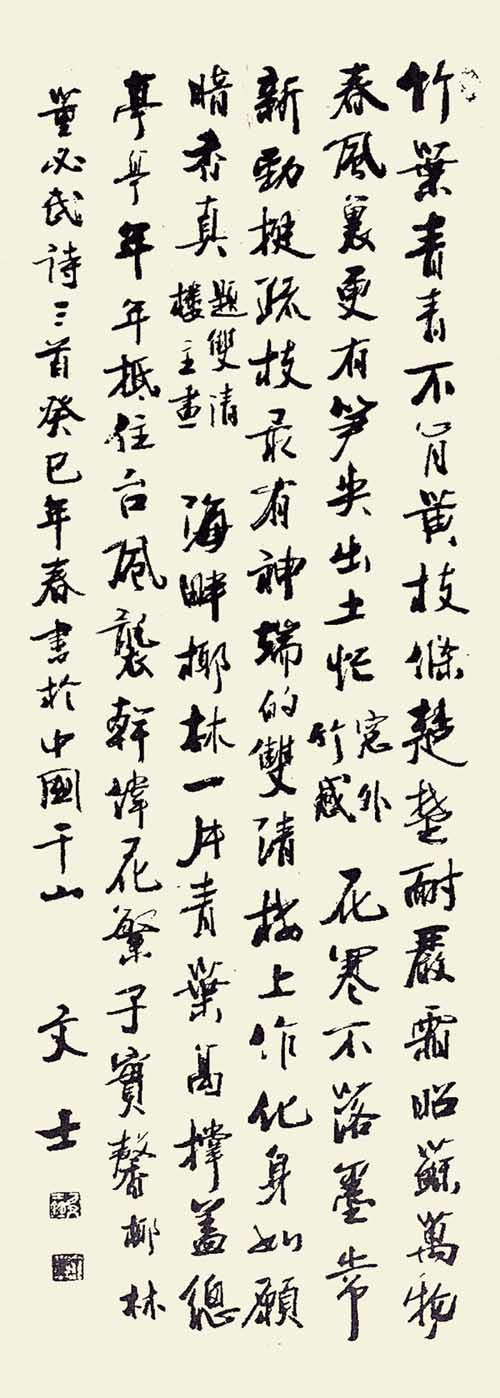 竹葉青青不肯黄枝條楚楚耐嚴霜昭蘇萬物
春風裏更有笋尖出土忙 窓外竹感 花寒不落墨常
新勁挺疏枝最有神端的雙清楼上作化身如願
暗香真 題雙清樓主畫 海畔椰林一片青葉高撑蓋總
亭亭年年抵住台風襲幹偉花繁子實馨 椰林
董必武詩三首癸巳年春書於中國千山 文士